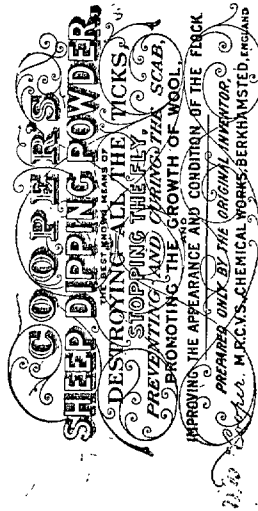 COOPER'S
SHEEP DIPPING POWDER,
THE BEST KNOWN MEANS OF
DESTROYING ALL THE TICKS,
STOPPING THE FLY,
PREVENTING AND CURING THE SCAB,
PROMOTING THE GROWTH OF WOOL,
AND
IMPROVING THE APPEARANCE AND CONDITION OF THE FLOCK
PREPARED ONLY BY THE ORIGINAL INVENTOR,
Wm Cooper. M.R.C.V.S., CHEMICAL WORKS, BERKHAMSTED, ENGLAND